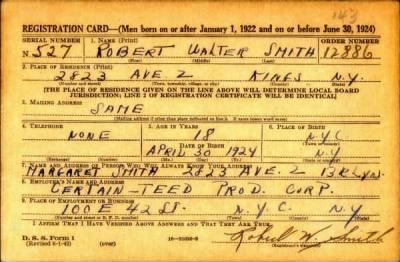 REGISTRATION CARD—(Men born on or after January 1, 1922 and on or before June 30, 1924)
SERIAL NUMBER 1. NAME (Print) ORDER NUMBER
N 527 ROBERT WALTER SMITH 12886
(First) (Middle) (Last)
2. PLACE OF RESIDENCE (Print)
2823 AVE Z KINGS N.Y.
(Number and street) (Town, township, village, or city) (County) (State)
[THE PLACE OF RESIDENCE GIVEN ON THE LINE ABOVE WILL DETERMINE LOCAL BOARD
JURISDICTION; LINE 2 OF REGISTRATION CERTIFICATE WILL BE IDENTICAL]
3. MAILING ADDRESS
SAME
(Mailing address if other than place indicated on line 2. If same insert word same)
4. TELEPHONE 5. AGE IN YEARS 6. PLACE OF BIRTH
NONE 18 N.Y.C
DATE OF BIRTH (Town or county)
APRIL 30 1924 N.Y.
(Exchange) (Number) (Mo.) (Day) (Yr.) (State or country)
7. NAME AND ADDRESS OF PERSON WHO WILL ALWAYS KNOW YOUR ADDRESS
MARGARET SMITH 2823 AVE. Z BKLYN.
8. EMPLOYER'S NAME AND ADDRESS
CERTAIN-TEED PROD. CORP.
9. PLACE OF EMPLOYMENT OR BUSINESS
100 E 42 ST. N.Y.C. N.Y
(Number and street or R. F. D. number) (Town) (County) (State)
I AFFIRM THAT I HAVE VERIFIED ABOVE ANSWERS AND THAT THEY ARE TRUE.
D. S. S. Form 1
(Revised 6-1-42) (over) Robert W. Smith
(Registrant's signature)